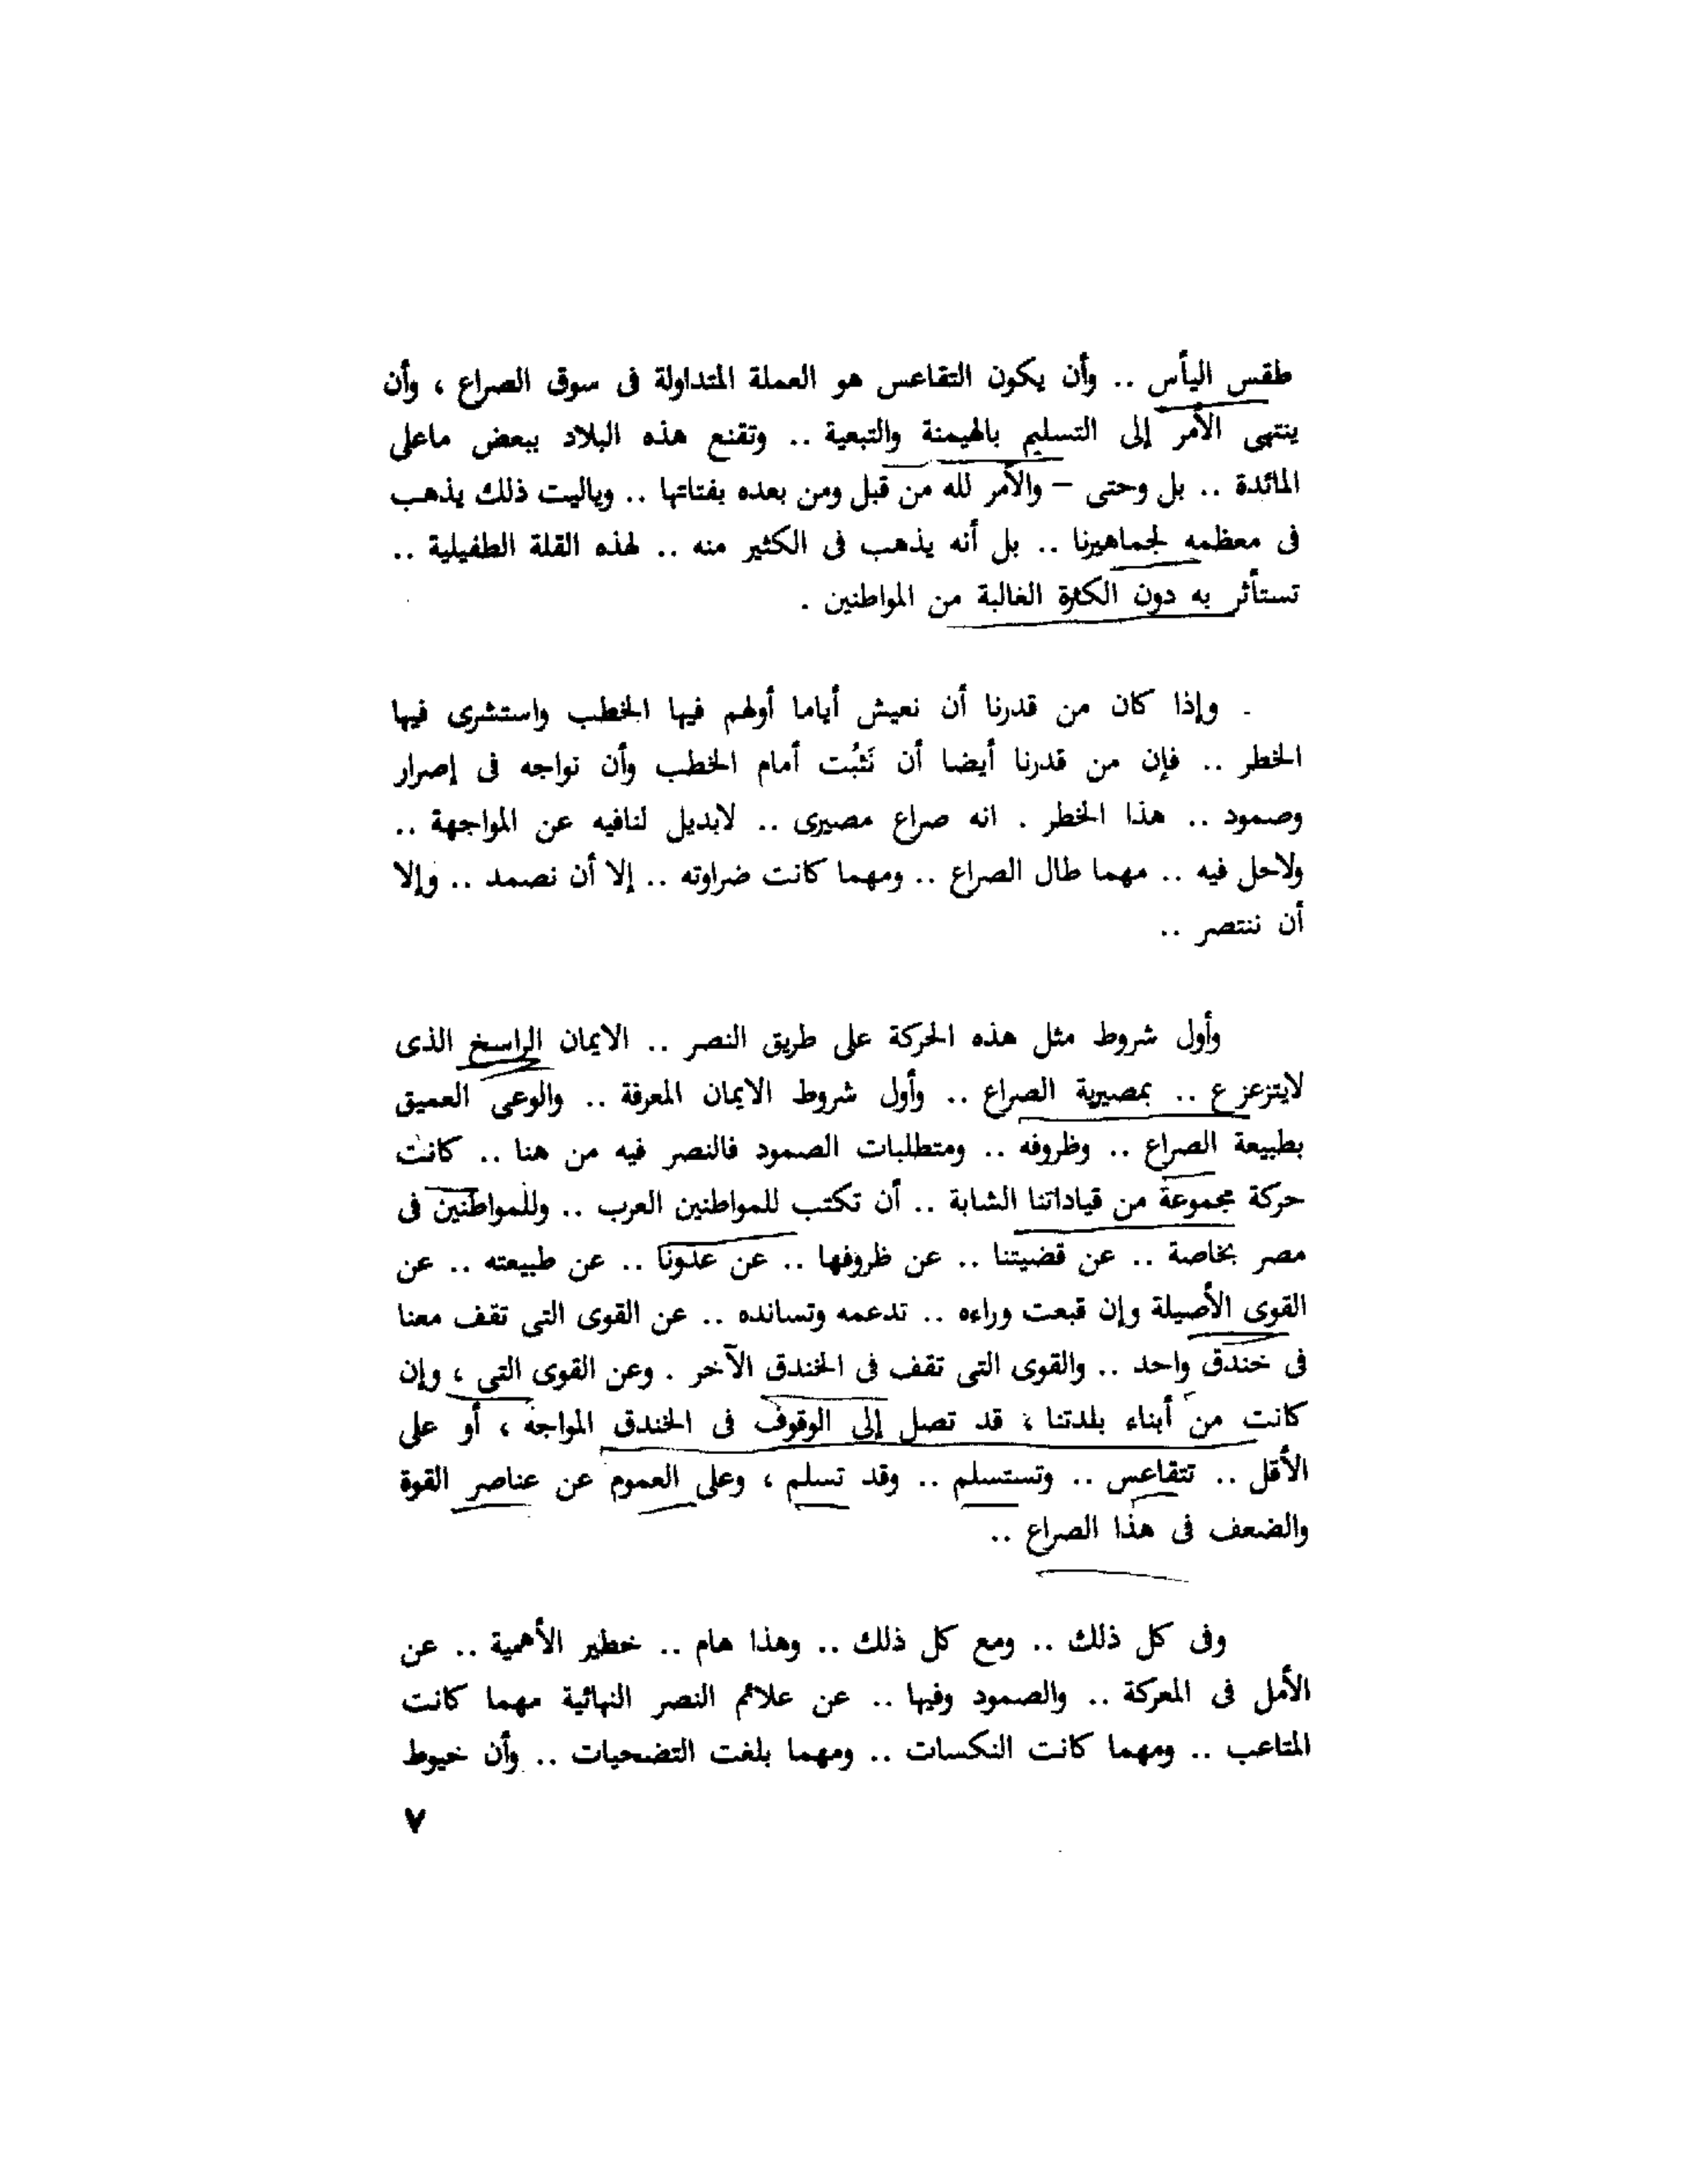 طقس اليأس .. وأن يكون التقاعس هو العملة المتداولة فى سوق الصراع ، وأن
ينتهى الأمر إلى التسليم بالهيمنة والتبعية .. وتقنع هذه البلاد ببعض ماعلى
المائدة .. بل وحتى – والأمر لله من قبل ومن بعده بفتاتها .. وياليت ذلك يذهب
فى معظمه لجماهيرنا .. بل أنه يذهب فى الكثير منه .. لهذه القلة الطفيلية ..
تستأثر به دون الكثرة الغالبة من المواطنين .
وإذا كان من قدرنا أن نعيش أياما أولهم فيها الخطب واستشرى فيها
الخطر .. فإن من قدرنا أيضا أن نَثبُت أمام الخطب وأن نواجه فى إصرار
وصمود .. هذا الخطر . انه صراع مصيرى .. لابديل لنافيه عن المواجهة ..
ولاحل فيه .. مهما طال الصراع .. ومهما كانت ضراوته .. إلا أن نصمد .. وإلا
أن ننتصر ..
وأول شروط مثل هذه الحركة على طريق النصر .. الايمان الراسخ الذى
لايتزعزع .. بمصيرية الصراع .. وأول شروط الايمان المعرفة .. والوعى العميق
بطبيعة الصراع .. وظروفه .. ومتطلبات الصمود فالنصر فيه من هنا .. كانت
حركة مجموعة من قياداتنا الشابة .. أن تكتب للمواطنين العرب .. وللمواطنين فى
مصر بخاصة .. عن قضيتنا .. عن ظروفها .. عن عدونا .. عن طبيعته .. عن
القوى الأصيلة وإن قبعت وراءه .. تدعمه وتسانده .. عن القوى التى تقف معنا
فى خندق واحد .. والقوى التى تقف فى الخندق الآخر . وعن القوى التى ، وإن
كانت من أبناء بلدتنا ، قد تصل إلى الوقوف فى الخندق المواجه ، أو على
الأقل .. تتقاعس .. وتستسلم .. وقد تسلم ، وعلى العموم عن عناصر القوة
والضعف فى هذا الصراع ..
وفى كل ذلك .. ومع كل ذلك .. وهذا هام .. خطير الأهمية .. عن
الأمل فى المعركة .. والصمود وفيها .. عن علائم النصر النهائية مهما كانت
المتاعب .. ومهما كانت النكسات .. ومهما بلغت التضحيات .. وأن خيوط
٧